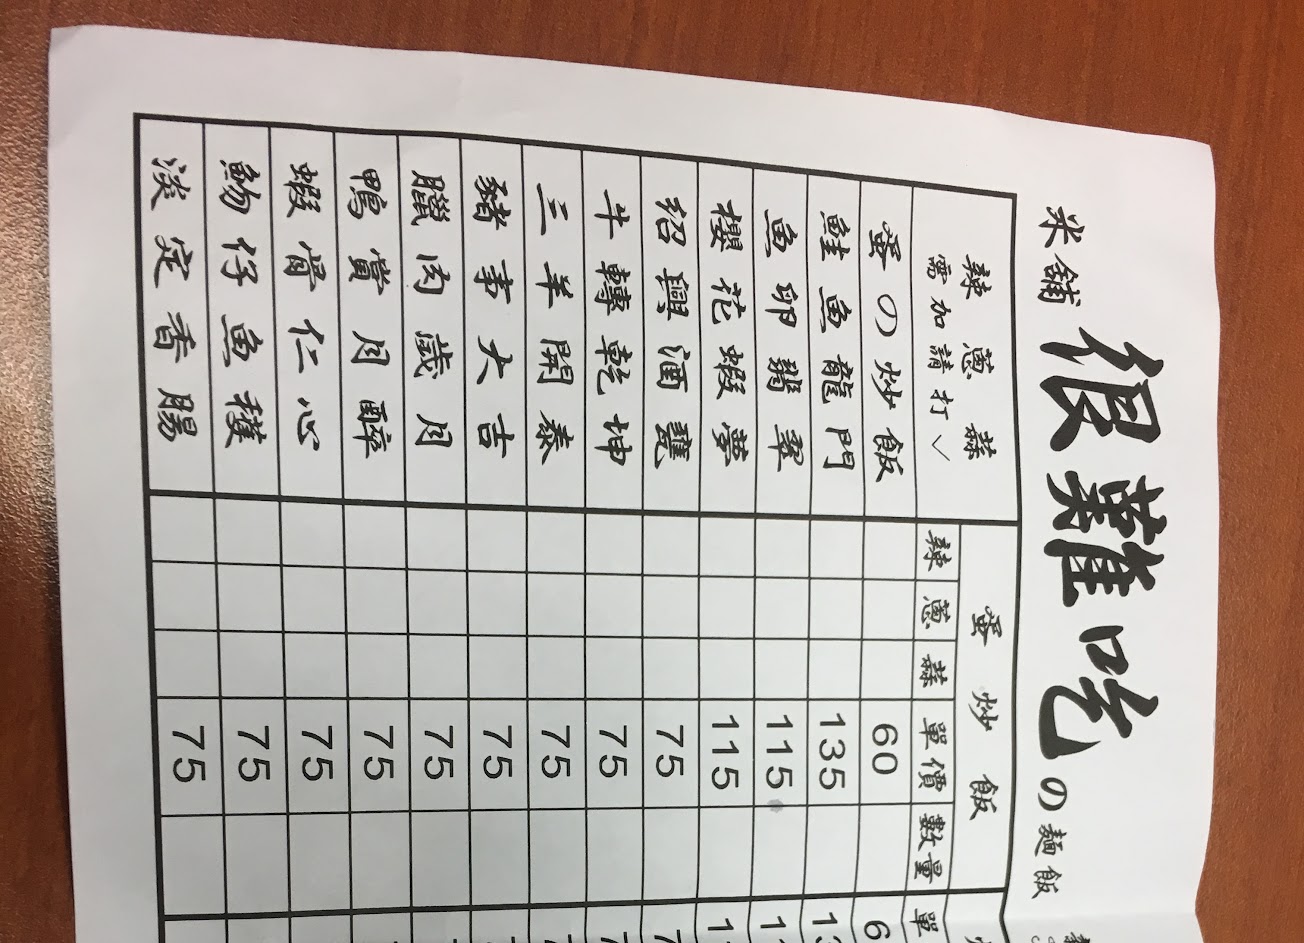 米舖 很難吃の麵飯
辣 蔥 蒜
需加請打✓
蛋炒飯
辣 蔥 蒜 單價 數量 單
蛋の炒飯 60 6
鮭魚龍門 135 13
魚卵翡翠 115 1
櫻花蝦夢 115 1
紹興酒甕 75 7
牛轉乾坤 75 7
三羊開泰 75 7
豬事大吉 75 7
臘肉歲月 75 7
鴨賞月醉 75 7
蝦膏仁心 75
魩仔魚穫 75
淡定香腸 75